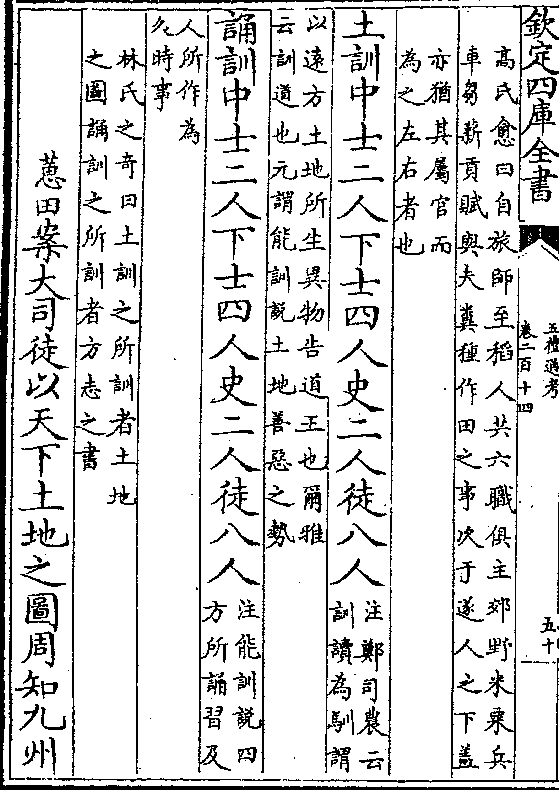 欽定四庫全書
五禮通考
卷二百十四
五十
高氏愈曰自旅師至稻人共六職俱主郊野米粟兵
車芻薪貢賦與夫糞種作田之事次于遂人之下蓋
亦猶其屬官而
為之左右者也
土訓中士二人下士四人史二人徒八人
注鄭司農云
訓讀為馴謂
以遠方土地所生異物告道王也爾雅
云訓道也元謂能訓説土地善惡之勢
誦訓中士二人下士四人史二人徒八人
注能訓説四
方所誦習及
人所作為
久時事
林氏之奇曰土訓之所訓者土地
之圖誦訓之所訓者方志之書
蕙田案大司徒以天下土地之圖周知九州